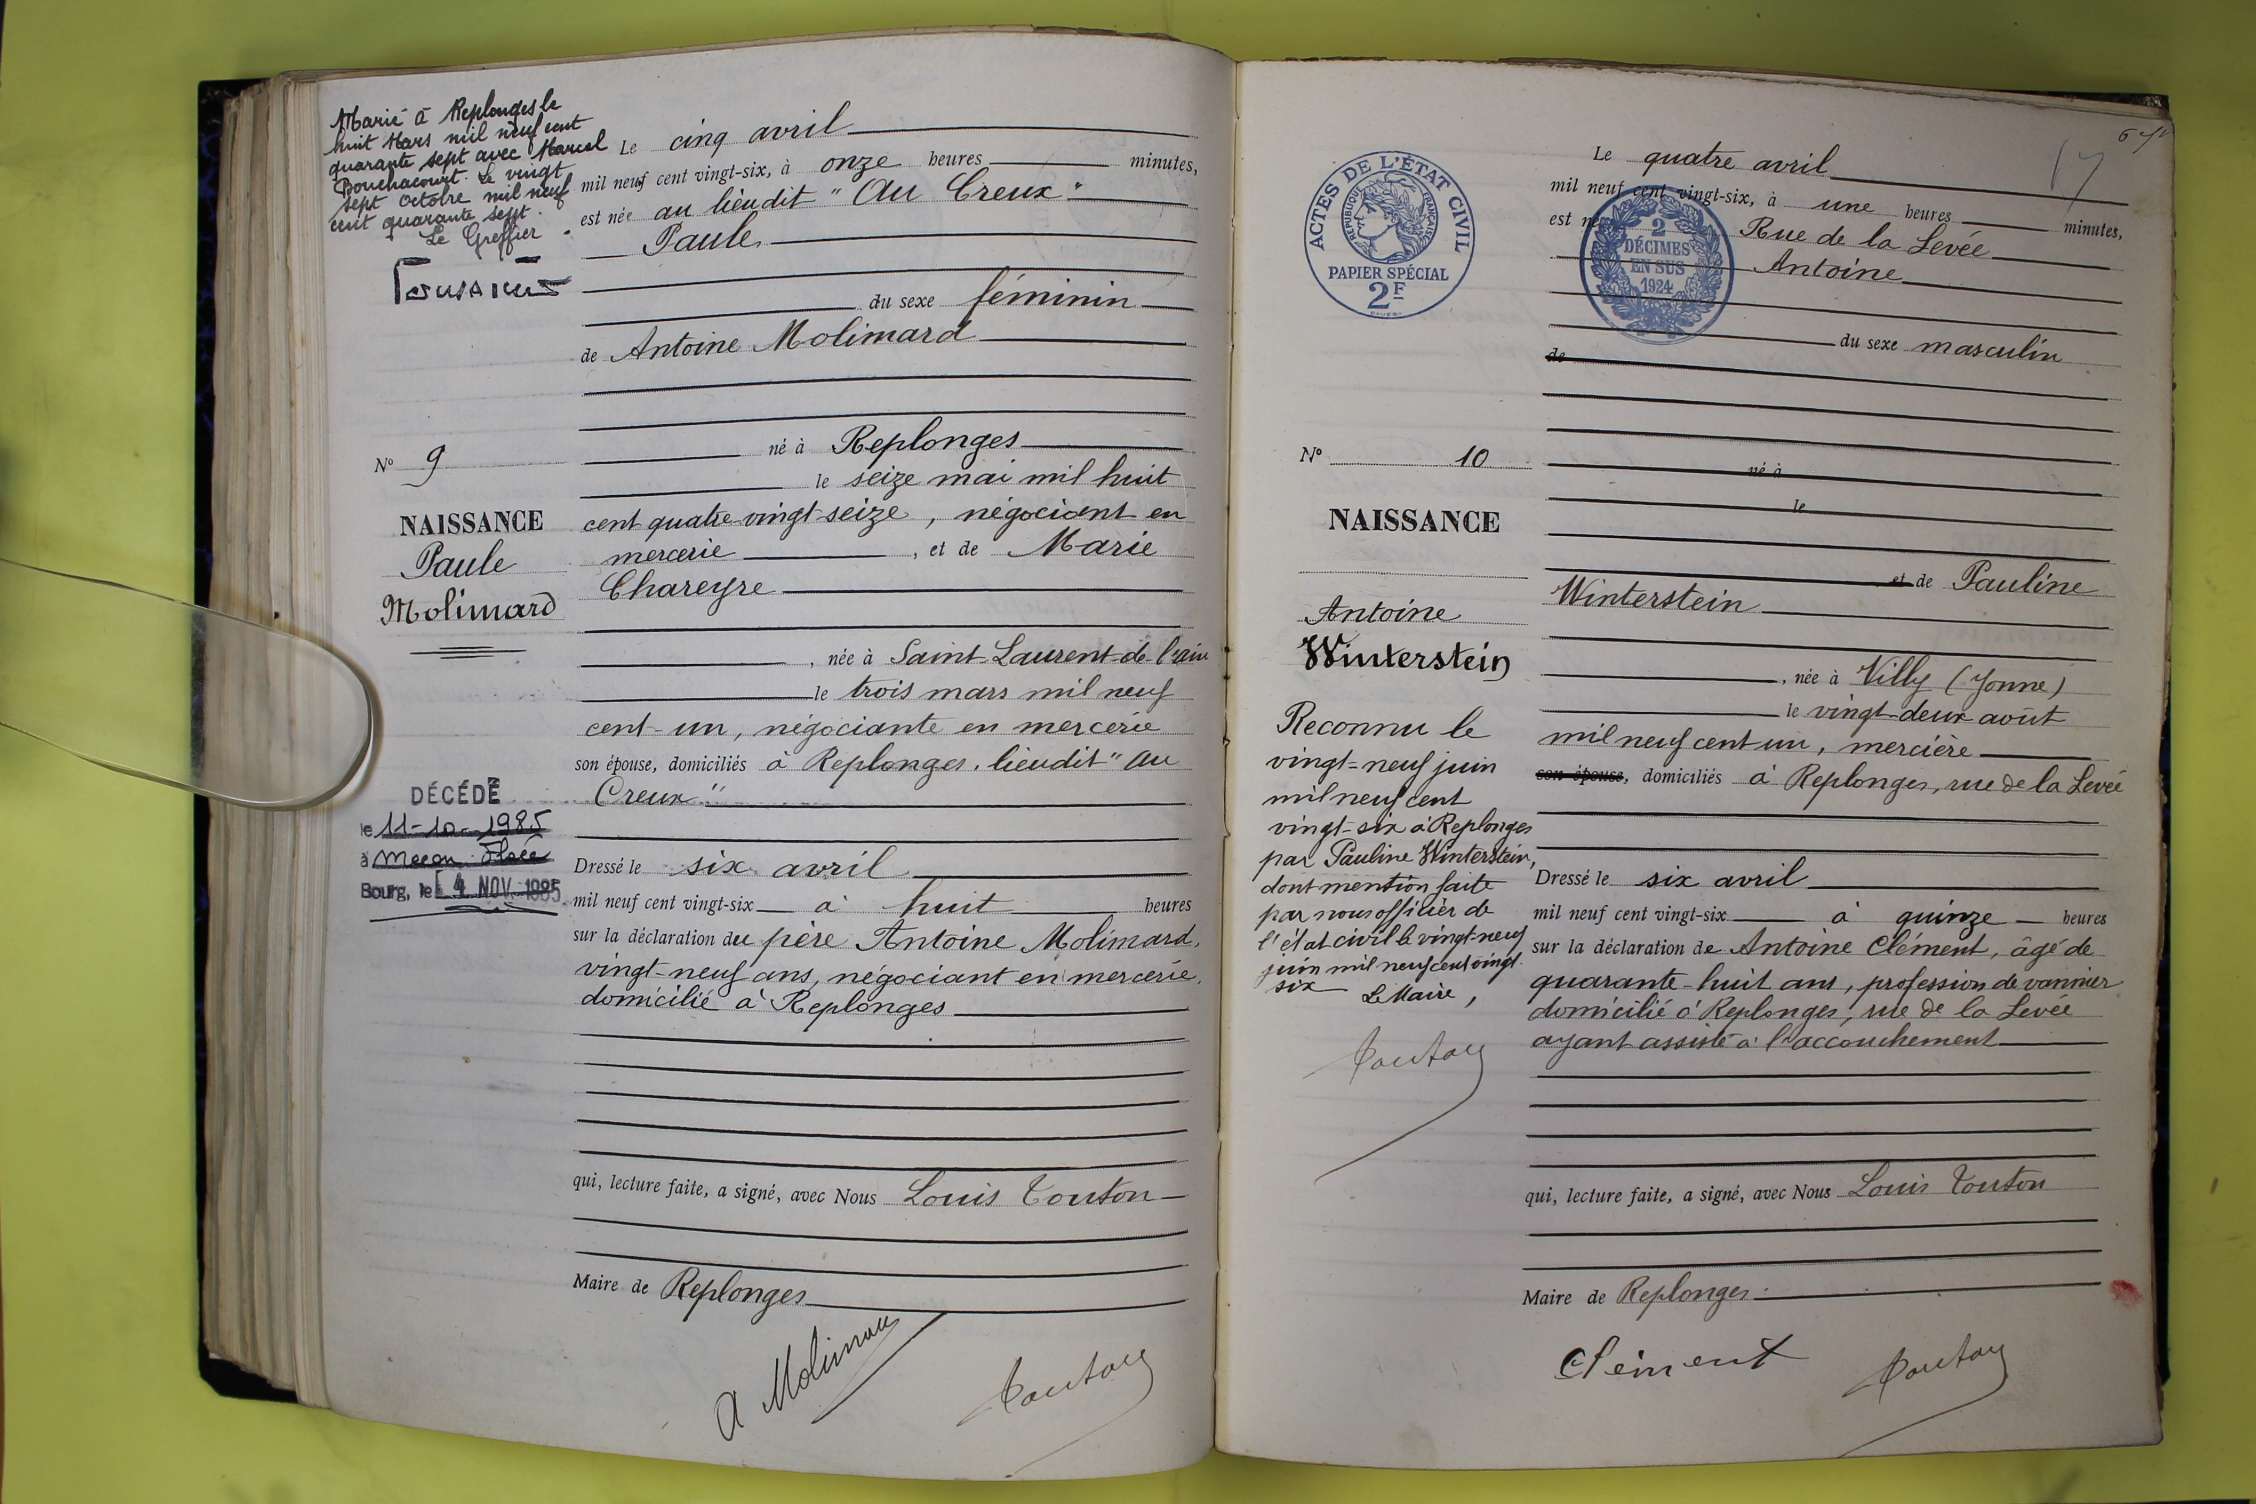 Marié à Replonges le
huit Mars mil neuf cent
quarante sept avec Marcel
Bouchacourt. Le vingt
sept Octobre mil neuf
cent quarante sept.
Le Greffier.
N° 9
NAISSANCE
Paule
Molimard
DÉCÉDÉ
le 11-10-1985
à Macon
Bourg, le 4 NOV. 1985
Le cinq avril
mil neuf cent vingt-six, à onze heures minutes,
est née au lieudit "Au Creux"
Paule
du sexe féminin
de Antoine Molimard
né à Replonges
le seize mai mil huit
cent quatre-vingt-seize, négociant en
mercerie, et de Marie
Chareyre
, née à Saint-Laurent-de-l'ain
le trois mars mil neuf
cent-un, négociante en mercerie
son épouse, domiciliés à Replonges, lieudit "Au
Creux"
Dressé le six avril
mil neuf cent vingt-six à huit heures
sur la déclaration du père Antoine Molimard,
vingt-neuf ans, négociant en mercerie,
domicilié à Replonges
qui, lecture faite, a signé, avec Nous Louis Touton
Maire de Replonges
A Molimard
Touton
ACTES DE L'ÉTAT CIVIL
RÉPUBLIQUE FRANÇAISE
PAPIER SPÉCIAL
2F
N° 10
NAISSANCE
Antoine
Winterstein
Reconnu le
vingt-neuf juin
mil neuf cent
vingt-six à Replonges
par Pauline Winterstein,
dont mention faite
par nous officier de
l'état civil le vingt-neuf
juin mil neuf cent vingt-
six Le Maire,
Touton
17
Le quatre avril
mil neuf cent vingt-six, à une heures minutes,
est né Rue de la Levée
2
DÉCIMES
EN SUS
1924
Antoine
du sexe masculin
de
né à
le
et de Pauline
Winterstein
, née à Villy (Yonne)
le vingt-deux août
mil neuf cent un, mercière
son épouse, domiciliés à Replonges, rue de la Levée
Dressé le six avril
mil neuf cent vingt-six à quinze heures
sur la déclaration de Antoine Clément, âgé de
quarante-huit ans, profession de vannier
domicilié à Replonges, rue de la Levée
ayant assisté à l'accouchement
qui, lecture faite, a signé, avec Nous Louis Touton
Maire de Replonges
Clément
Touton